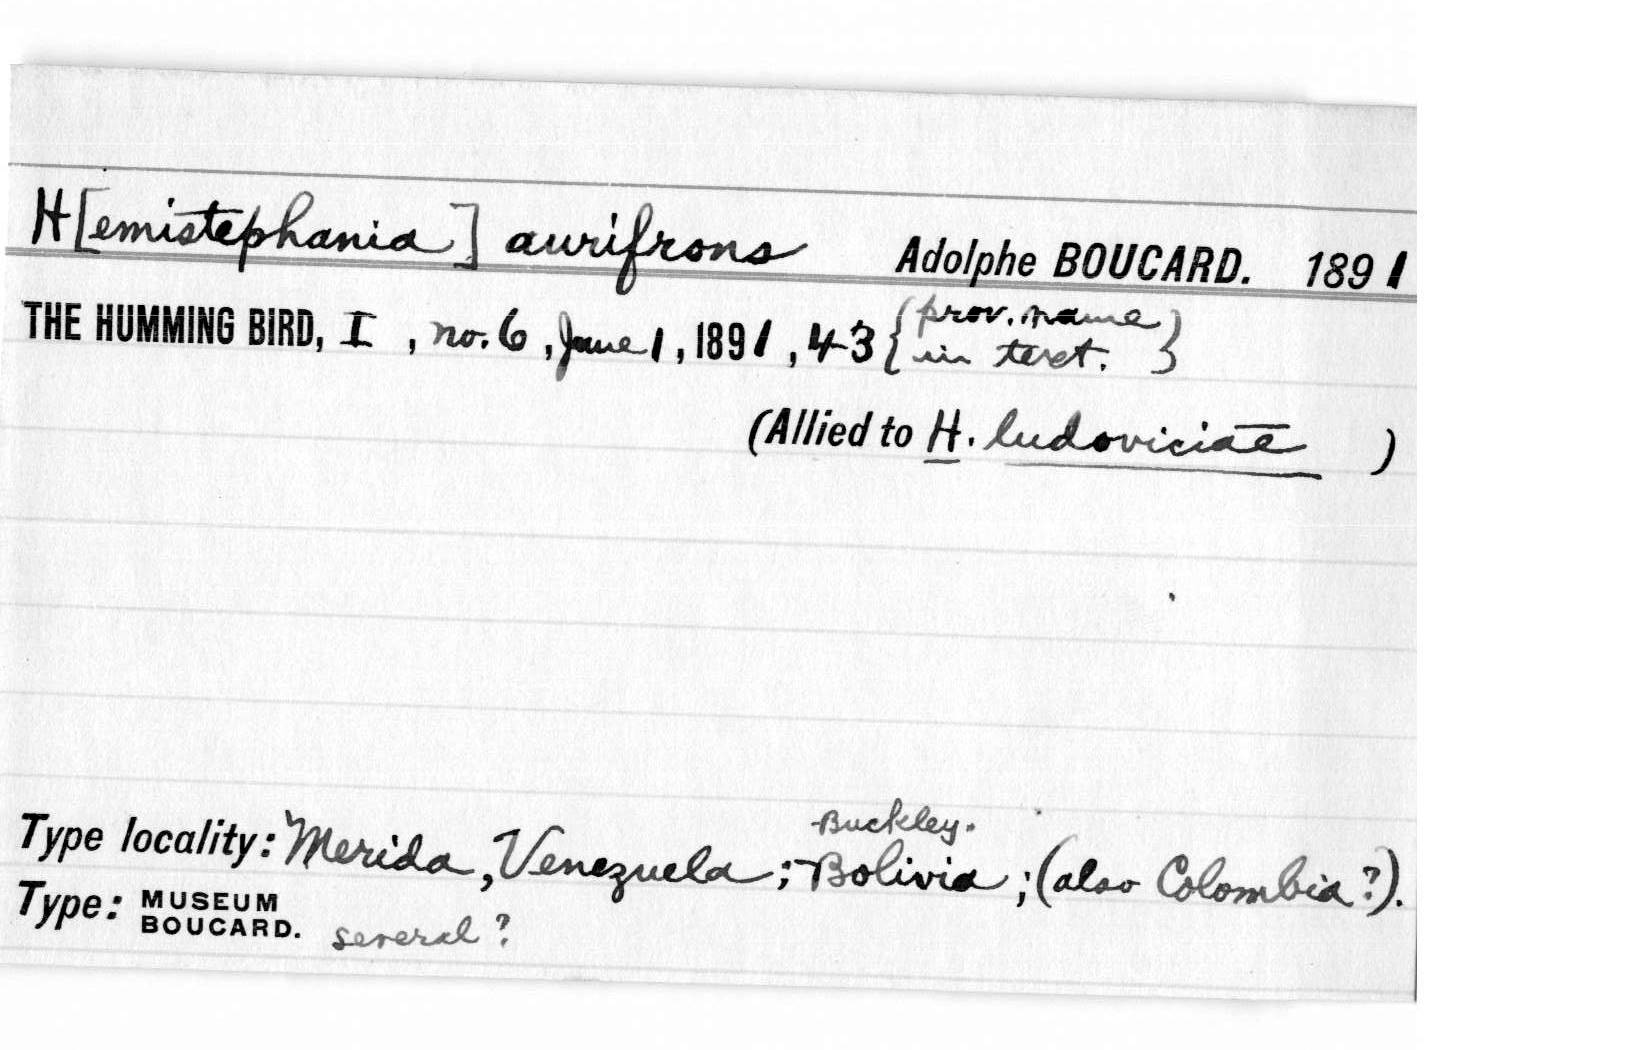 H[emistephania] aurifrons Adolphe BOUCARD. 1891
THE HUMMING BIRD, I, no. 6, June 1, 1891, 43 { prov. name
in text. }
(Allied to H. ludoviciae )
Buckley.
Type locality: Merida, Venezuela; Bolivia; (also Colombia?).
Type: MUSEUM
BOUCARD. several?